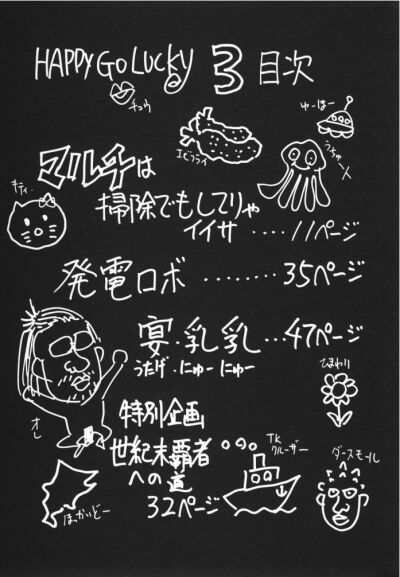 HAPPY GO LUCKY 3 目次
チュウ
エビフライ
ゆーほー
うちゅー人
マルチは
キティ
掃除でもしてりゃ
イイサ ‥‥11ページ
発電ロボ ‥‥‥‥35ページ
宴・乳乳 ‥・47ページ
うたげ・にゅーにゅー
ひまわり
オレ
特別企画
世紀末覇者
への道
32ページ
TK
クルーザー
ダースモール
ほっかいどー